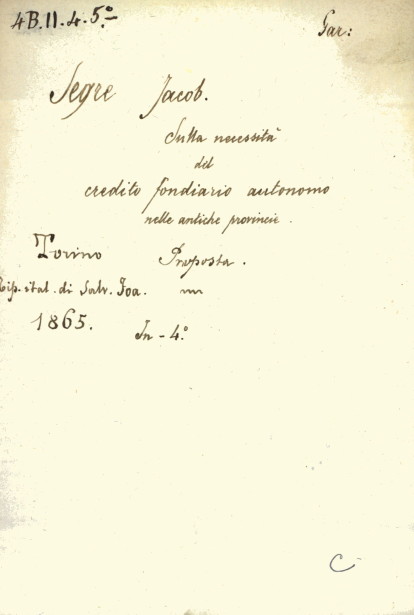 4B.II.4.5.º
Gar:
Segre Jacob.
Sulla necessità
del
credito fondiario autonomo
nelle antiche provincie.
Torino Proposta.
Tip. ital. di Salv. Foa.
1865. In-4.º
C